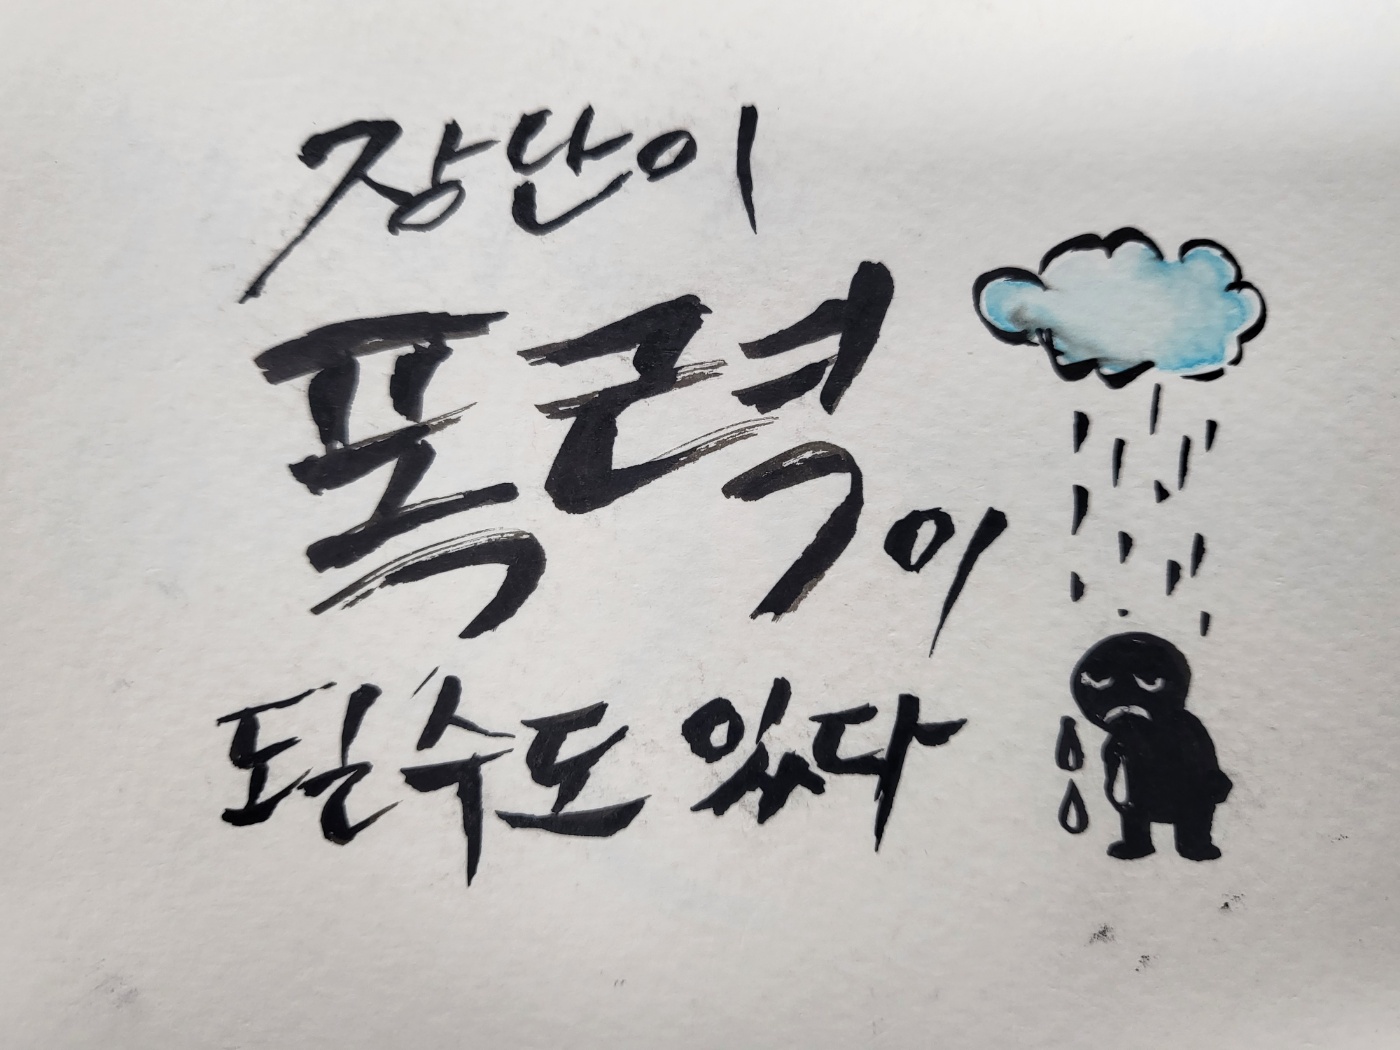 장단이
폭력이
될수도 있다